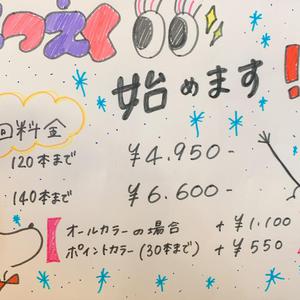 つえく
始めます!
回料金
120本まで ¥4.950-
140本まで ¥6.600-
オールカラーの場合 +¥1.100
ポイントカラー(30本まで) +¥550